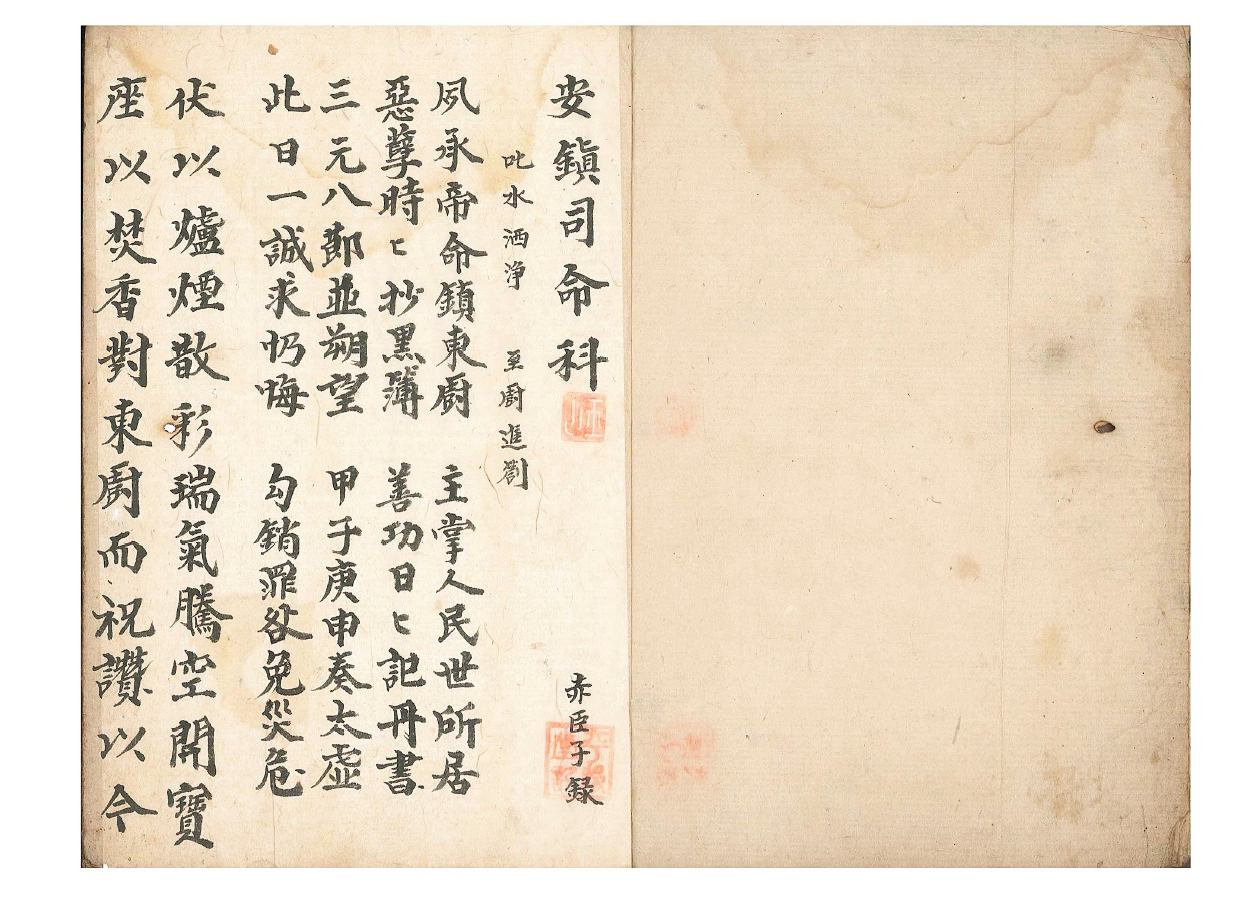 安鎮司命科
赤臣子録
叱水洒净 至廚進劄
夙承帝命鎮東廚 主掌人民世所居
惡孽時〻抄黑簿 善功日〻記丹書
三元八節並朔望 甲子庚申奏太虛
此日一誠求忏悔 勾銷罪咎免災危
伏以爐煙散彩瑞氣騰空開寶
座以焚香對東廚而祝讚以今